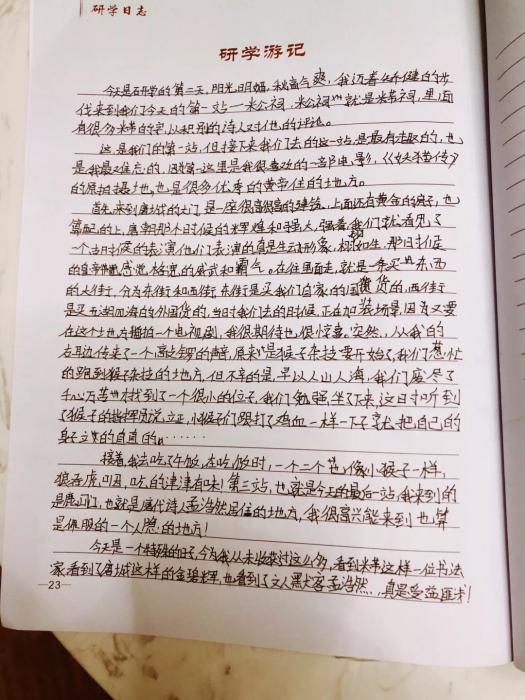 研学日志
研学游记
今天是研学的第二天，阳光明媚，秋高气爽，我迈着矫健的步
伐来到我们今天的第一站—米公祠，米公祠"就是米芾祠，里面
有很多米芾的字，从积别的诗人对他的评论。
这是我们的第一站，但接下来我们去的这一站是最有趣的，也
是我最难忘的，因为第一这里是我很喜欢的一部电影，《妖猫传》
的原拍摄地，也是很多优秀的黄帝住的地方。
首先来到唐城的大门，是一座很高很高的建筑，上面还有黄金的房子，也
算配的上，唐朝那个时候的辉煌和强大，强着我们就看见了
一个古时候的表演他们表演的真是生动形象，栩栩如生，那时候
的皇帝带感觉格克的威武和霸气。在往里面走，就是一条买东西
的大街，分为东街和西街，东街是买我们自家的国货的，西街
是买五湖四海的外国货的，当时我们去的时候，正在加装场景，因为又要
在这个地方播拍一个电视剧，我很期待也很惊喜，突然，从我的
右耳边传来了一个高吭锣的声音，原来是猴子杂技要开始了，我们急忙
的跑到猴子杂技的地方，但不幸的是，早以人山人海，我们废尽了
千心万苦才找到了一个很小的位子，我们勉强坐下来，这时听到
了猴子的指挥员说立正，小猴子们跟打了鸡血一样一下子就把自己的
身子立的直直的。……
接着我去吃了午饭，在吃饭时，一个二个也像小猴子一样，
狼吞虎咽，吃的津津有味！第三站，也就是今天的最后一站，我来到的
是鹿门，也就是唐代诗人孟浩然居住的地方，我很高兴能来到也算
是佩服的一个人隐的地方！
今天是一个特殊的日子，今为我从未收获过这么多，看到米芾这样一位书法
家，看到了唐城这样的金碧辉，也看到了文人黑客孟浩然…真是受益匪浅！
23